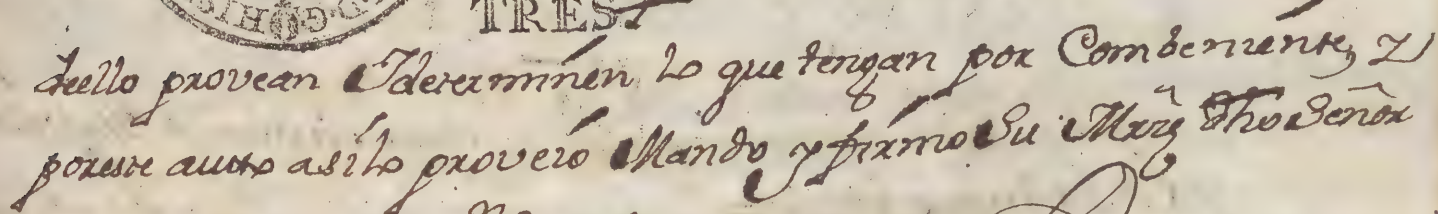 TRES.
dello provean Ydeterminen lo que tengan por Combeniente, y
poreste autto asilo proveió Mando y firmo Su Mrẽ. dho Señor